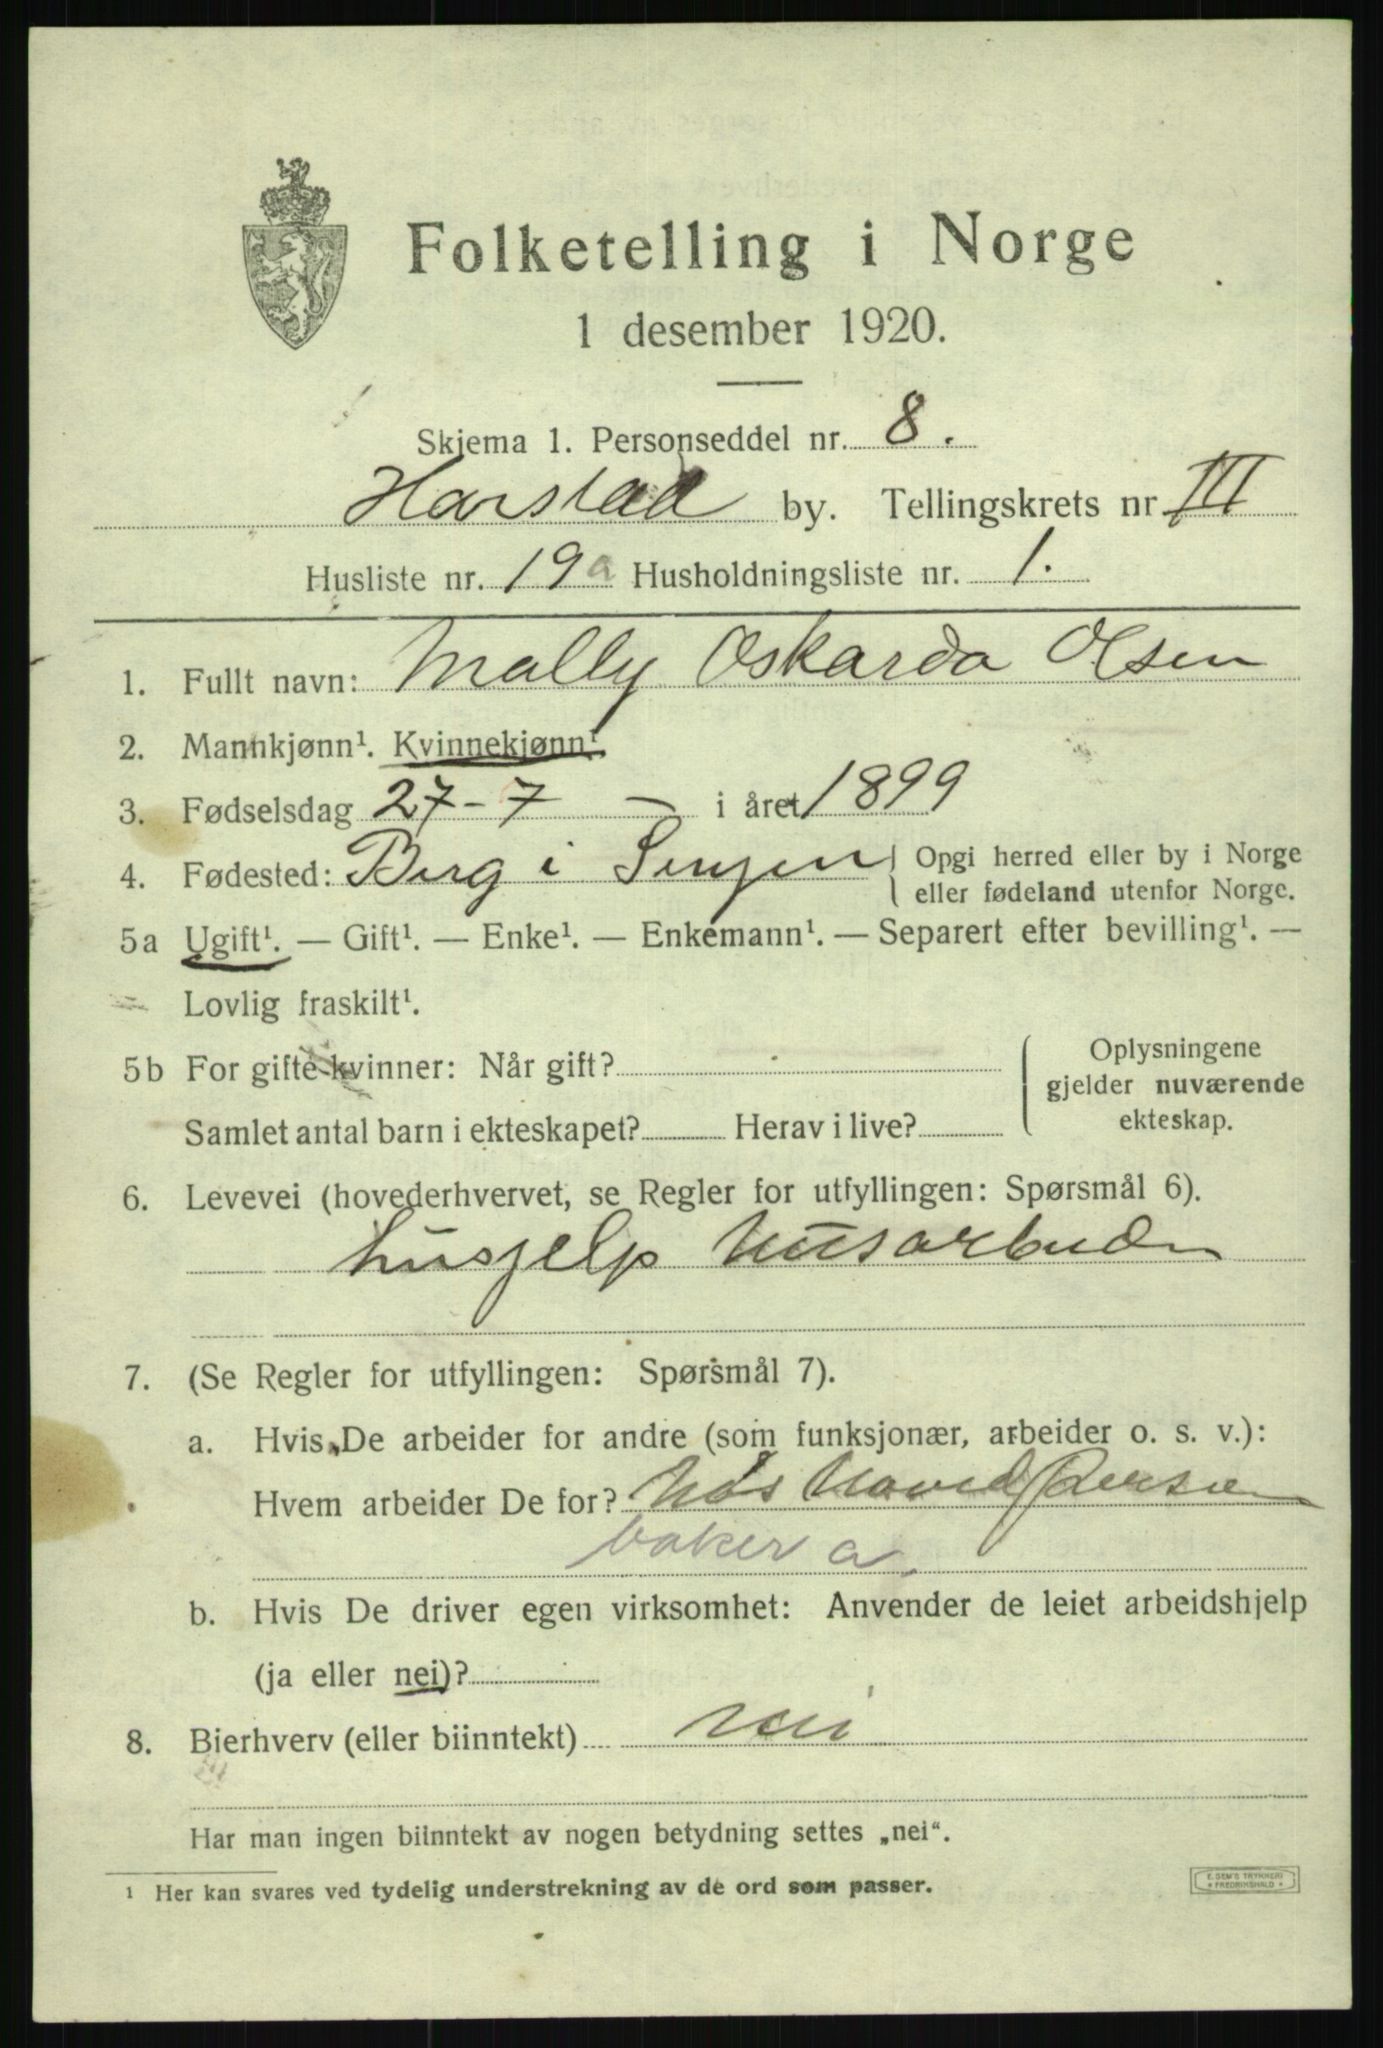 Folketelling i Norge
1 desember 1920.
Skjema 1. Personseddel nr. 8.
Harstad by. Tellingskrets nr III
Husliste nr. 19a Husholdningsliste nr. 1.
1. Fullt navn: Mally Oskarda Olsen
2. Mannkjønn¹. Kvinnekjønn¹
3. Fødselsdag 27-7 — i året 1899
4. Fødested: Berg i Senjen Opgi herred eller by i Norge
eller fødeland utenfor Norge.
5a Ugift¹. — Gift¹. — Enke¹. — Enkemann¹. — Separert efter bevilling¹. —
Lovlig fraskilt¹.
5b For gifte kvinner: Når gift?
Samlet antal barn i ekteskapet? Herav i live?
Oplysningene
gjelder nuværende
ekteskap.
6. Levevei (hovederhvervet, se Regler for utfyllingen: Spørsmål 6).
husjelp Husarbeide
7. (Se Regler for utfyllingen: Spørsmål 7).
a. Hvis De arbeider for andre (som funksjonær, arbeider o. s. v.):
Hvem arbeider De for? Hos
baker a
b. Hvis De driver egen virksomhet: Anvender de leiet arbeidshjelp
(ja eller nei)?
8. Bierhverv (eller biinntekt) nei
Har man ingen biinntekt av nogen betydning settes „nei“.
¹ Her kan svares ved tydelig understrekning av de ord som passer.
E. SEM'S TRYKKERI
FREDRIKSHALD